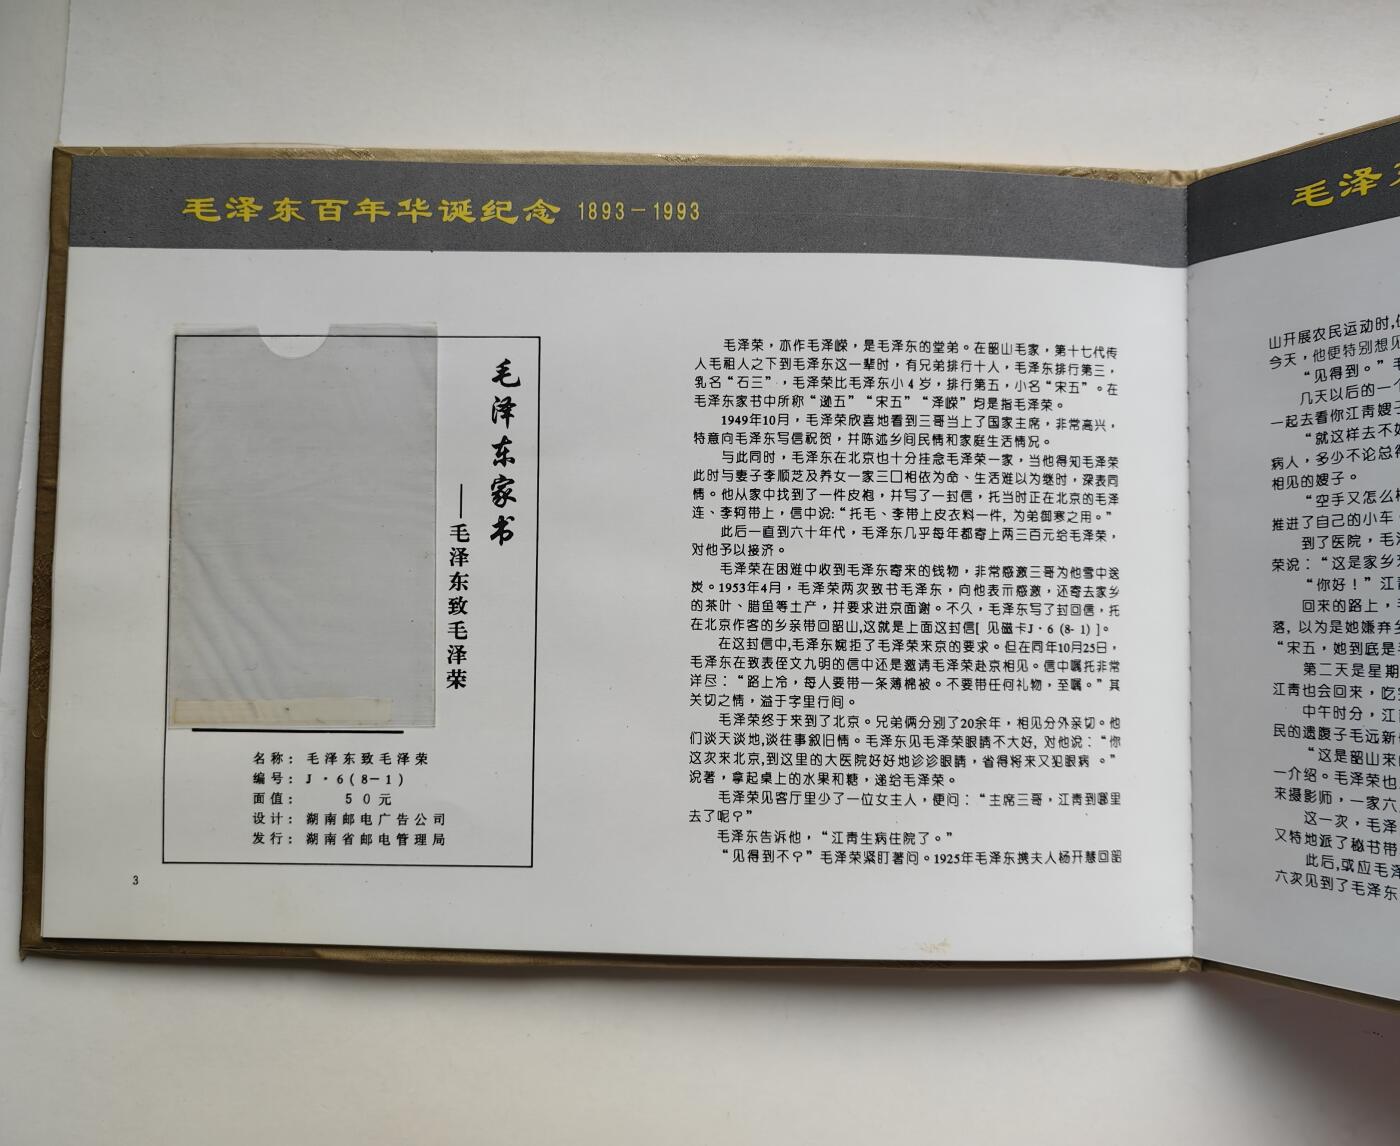 毛泽东百年华诞纪念 1893－1993
毛泽东家书
——毛泽东致毛泽荣
名称：毛泽东致毛泽荣
编号：J·6(8－1)
面值： 50元
设计：湖南邮电广告公司
发行：湖南省邮电管理局
3
毛泽荣，亦作毛泽嵘，是毛泽东的堂弟。在韶山毛家，第十七代传
人毛祖人之下到毛泽东这一辈时，有兄弟排行十人，毛泽东排行第三，
乳名“石三”，毛泽荣比毛泽东小4岁，排行第五，小名“宋五”。在
毛泽东家书中所称“逊五”“宋五”“泽嵘”均是指毛泽荣。
1949年10月，毛泽荣欣喜地看到三哥当上了国家主席，非常高兴，
特意向毛泽东写信祝贺，并陈述乡间民情和家庭生活情况。
与此同时，毛泽东在北京也十分挂念毛泽荣一家，当他得知毛泽荣
此时与妻子李顺芝及养女一家三口相依为命、生活难以为继时，深表同
情。他从家中找到了一件皮袍，并写了一封信，托当时正在北京的毛泽
连、李轲带上，信中说:“托毛、李带上皮衣料一件, 为弟御寒之用。”
此后一直到六十年代，毛泽东几乎每年都寄上两三百元给毛泽荣，
对他予以接济。
毛泽荣在困难中收到毛泽东寄来的钱物，非常感激三哥为他雪中送
炭。1953年4月，毛泽荣两次致书毛泽东，向他表示感激，还寄去家乡
的茶叶、腊鱼等土产，并要求进京面谢。不久，毛泽东写了封回信，托
在北京作客的乡亲带回韶山,这就是上面这封信[ 见磁卡J·6 (8- 1) ]。
在这封信中,毛泽东婉拒了毛泽荣来京的要求。但在同年10月25日，
毛泽东在致表侄文九明的信中还是邀请毛泽荣赴京相见。信中嘱托非常
详尽：“路上冷，每人要带一条薄棉被。不要带任何礼物，至嘱。”其
关切之情，溢于字里行间。
毛泽荣终于来到了北京。兄弟俩分别了20余年，相见分外亲切。他
们谈天谈地,谈往事叙旧情。毛泽东见毛泽荣眼睛不大好, 对他说：“你
这次来北京,到这里的大医院好好地诊诊眼睛，省得将来又犯眼病 。”
说著，拿起桌上的水果和糖，递给毛泽荣。
毛泽荣见客厅里少了一位女主人，便问：“主席三哥，江青到哪里
去了呢？”
毛泽东告诉他，“江青生病住院了。”
“见得到不？”毛泽荣紧盯著问。1925年毛泽东携夫人杨开慧回韶
毛泽
山开展农民运动时,
今天，他便特别想见
“见得到。”
几天以后的一个
一起去看你江青嫂子
“就这样去不好
病人，多少不论总得
相见的嫂子。
“空手又怎么样
推进了自己的小车
到了医院，毛
荣说：“这是家乡
“你好！”江青
回来的路上，
落, 以为是她嫌弃
“宋五，她到底是
第二天是星期
江青也会回来，吃
中午时分，江
民的遗腹子毛远新
“这是韶山来
一介绍。毛泽荣也
来摄影师，一家六
这一次，毛泽
又特地派了秘书带
此后,或应毛泽
六次见到了毛泽东